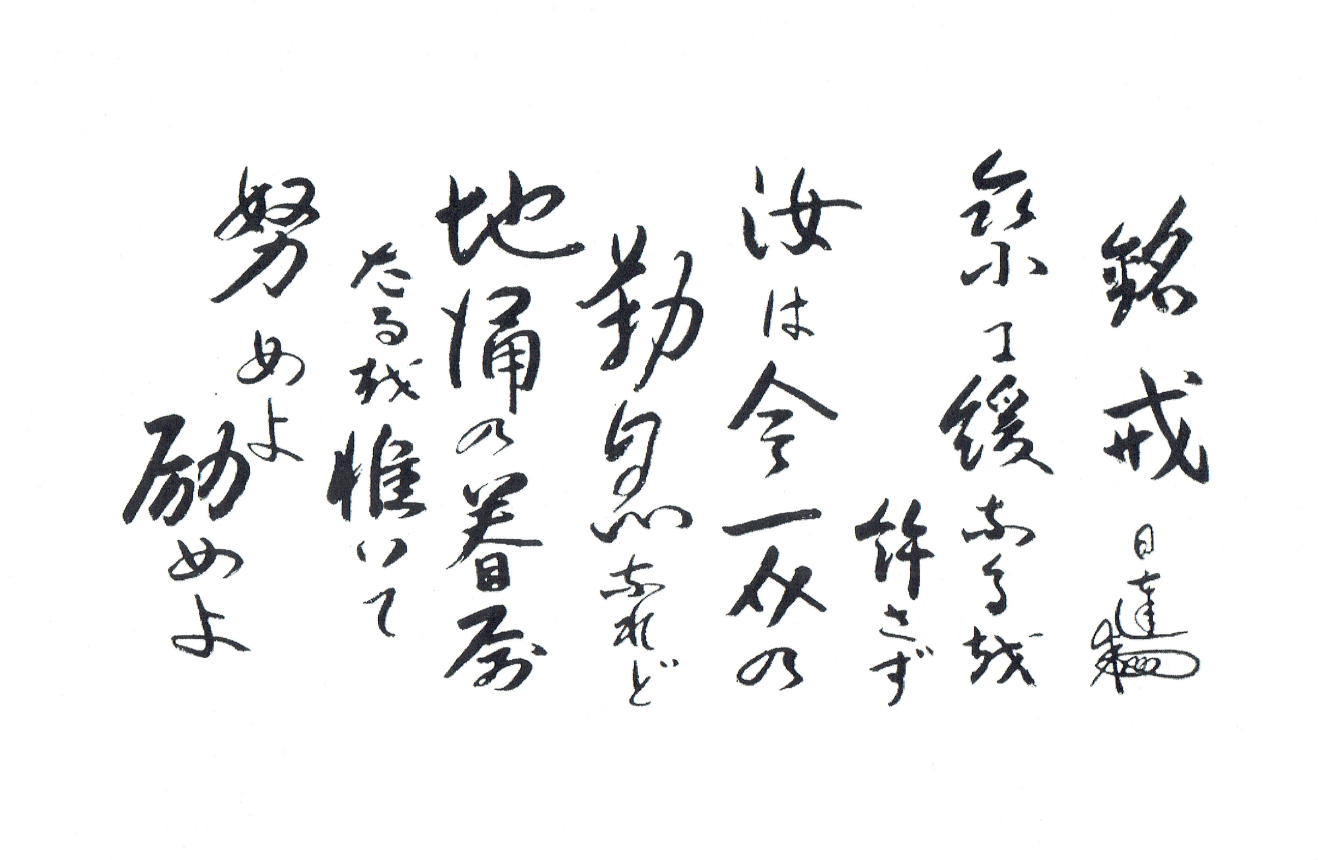 銘戒 日達
工緩なるを
許さず
汝は今一介の
勤息なれど
地涌の眷属
たるを惟いて
努めよ
励めよ